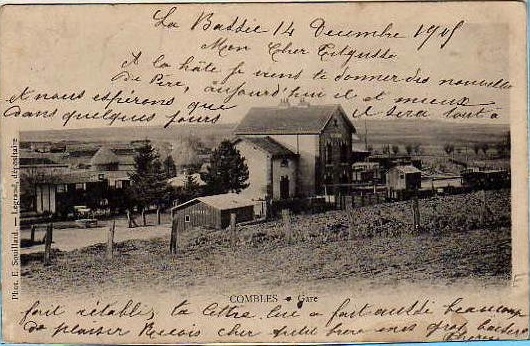 La Bassée 14 Decembre 19
Mon Cher
A la hâte je viens te donner des nouvelles
De Père, aujourd'hui il et mieux
et nous espérons que il sera tout a
Dans quelques jours
Phot. E. Souillard. — Legrand, dépositaire
COMBLES - Gare
fait rétabli, ta lettre lui a fait aussie beaucoup
de plaisir Recois cher petit